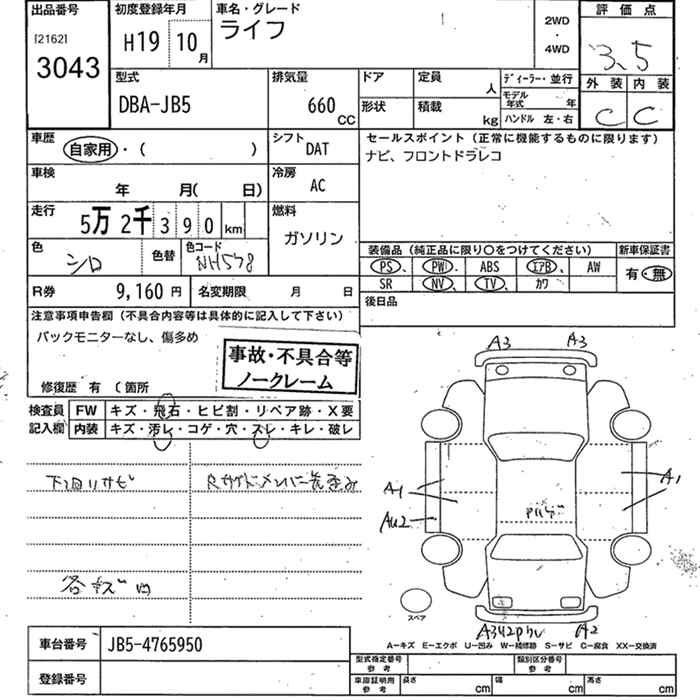 出品番号 初度登録年月 車名・グレード 評価点
[2162] 3043
H19 10月
ライフ
2WD ・ 4WD
3.5
外装 内装
C C
型式 排気量 ドア 定員 人 ディーラー・並行
DBA-JB5 660 CC
形状 積載 kg
モデル年式 年
ハンドル 左・右
車歴 自家用・( )
シフト DAT
セールスポイント(正常に機能するものに限ります)
ナビ、フロントドラレコ
車検 年 月( 日)
冷房 AC
走行 5万2千390km
燃料 ガソリン
色 シロ 色替 色コード NH578
装備品(純正品に限り○をつけてください) 新車保証書
PS、 PW、 ABS エアB、 AW 有・無
SR NV、 TV、 カワ
R券 9,160円 名変期限 月 日
後日品
注意事項申告欄(不具合内容等は具体的に記入して下さい)
バックモニターなし、傷多め
事故・不具合等
ノークレーム
修復歴 有 〔箇所
検査員 記入欄
FW キズ・飛石・ヒビ割・リペア跡・X要
内装 キズ・汚レ・コゲ・穴・スレ・キレ・破レ
下回リサビ
各キズ凹
A3 A3
A1 A1
AU2
A2
スペア
A−キズ E−エクボ U−凹み W−補修跡 S−サビ C−腐食 XX−交換済
車台番号 JB5-4765950
登録番号
型式指定番号 参考 類別区分番号 参考
車庫証明用 参考 長さ cm 幅 cm 高さ cm